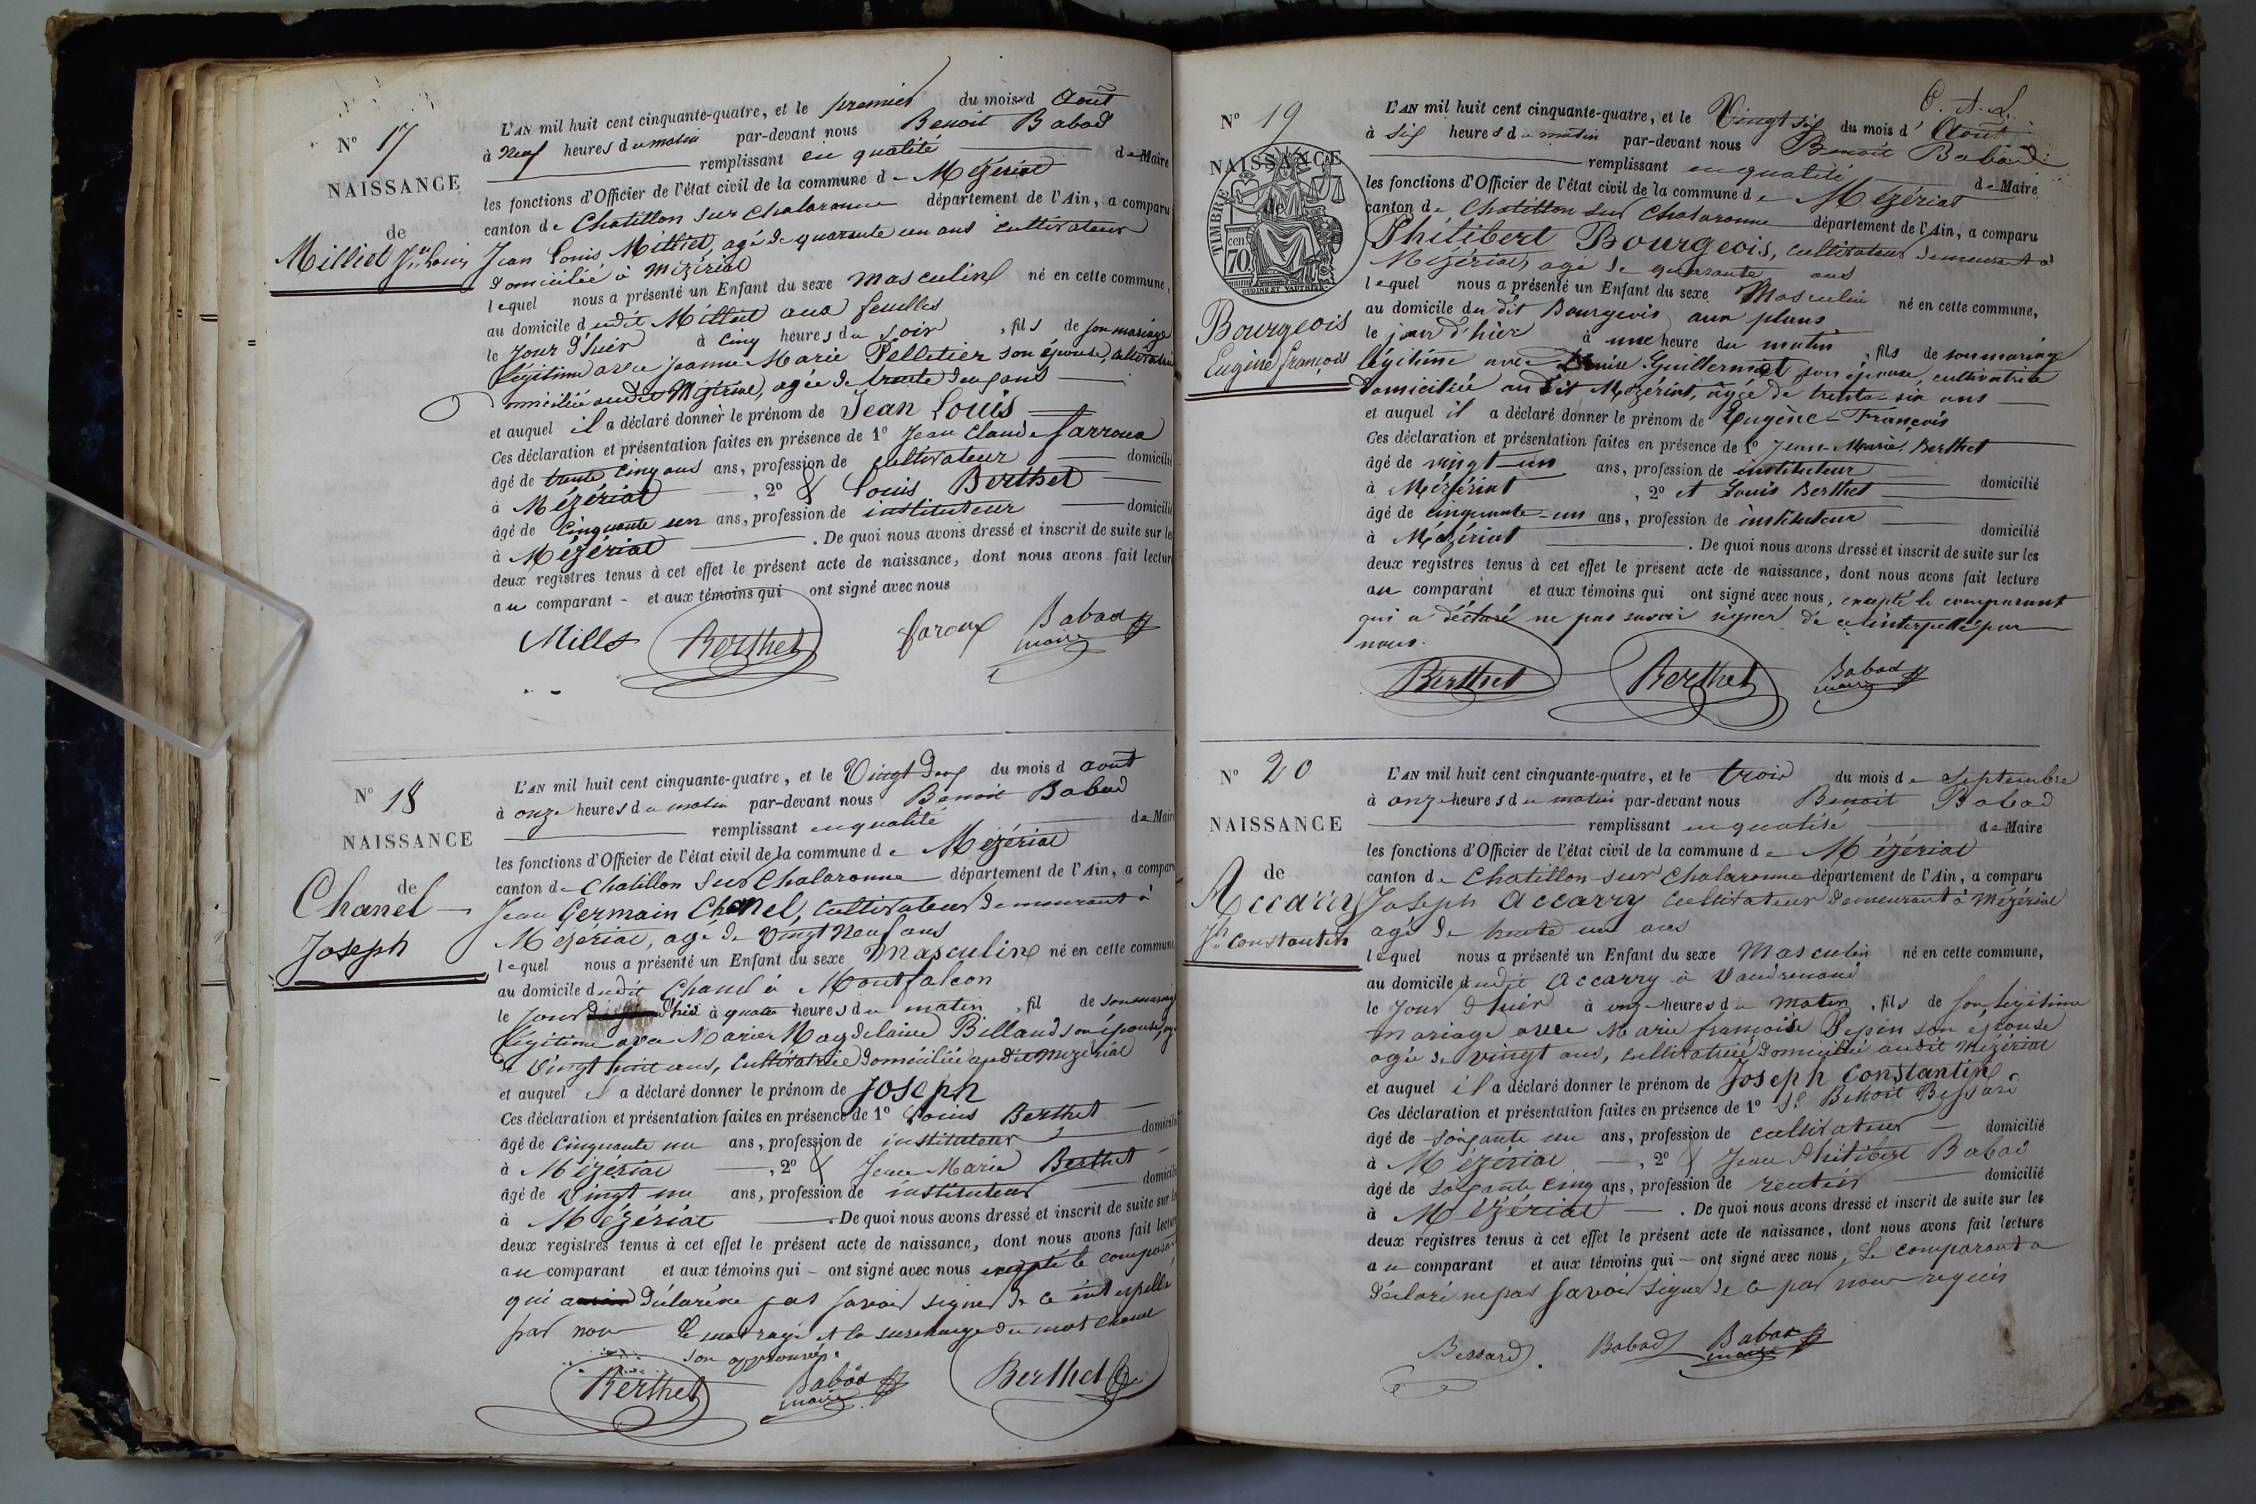 N° 17
NAISSANCE
de
Milliet Jn Louis
L'AN mil huit cent cinquante-quatre, et le premier du mois d Août
à Neuf heures du matin par-devant nous Benoit Babad
remplissant en qualité de Maire
les fonctions d'Officier de l'état civil de la commune de Mézériat
canton de Chatillon sur Chalaronne département de l'Ain, a comparu
Jean Louis Milliet, agé de quarante un ans cultivateur
domicilié à Mézériat
lequel nous a présenté un Enfant du sexe masculin né en cette commune,
au domicile dudit Milliet aux feuilles
le Jour d'hier à cinq heures du soir, fils de son mariage
légitime avec jeanne Marie Pelletier son épouse, cultivatrice
domiciliée audit Mézériat, agée de trente deux ans
et auquel il a déclaré donner le prénom de Jean Louis
Ces déclaration et présentation faites en présence de 1° Jean Claude farroux
âgé de trente cinq ans ans, profession de cultivateur domicilié
à Mézériat, 2° & Louis Berthet
âgé de cinquante un ans, profession de instituteur domicilié
à Mézériat. De quoi nous avons dressé et inscrit de suite sur les
deux registres tenus à cet effet le présent acte de naissance, dont nous avons fait lecture
au comparant - et aux témoins qui ont signé avec nous
Berthet faroux Babad
maire
N° 18
NAISSANCE
de
Chanel
Joseph
L'AN mil huit cent cinquante-quatre, et le Vingt deux du mois d août
à onze heures du matin par-devant nous Benoit Babad
remplissant en qualité de Maire
les fonctions d'Officier de l'état civil de la commune de Mézériat
canton de Chatillon Sur Chalaronne département de l'Ain, a comparu
Jean Germain Chanel, cultivateur demeurant à
Mézériat, agé de Vingt Neuf ans
lequel nous a présenté un Enfant du sexe masculin né en cette commune
au domicile dudit Chanel à Montfalcon
le jour d'hier à quatre heures du matin, fil de son mariage
légitime avec Marie Magdelaine Billaud son épouse, agée
de Vingt huit ans, cultivatrice domiciliée audit Mézériat
et auquel il a déclaré donner le prénom de Joseph
Ces déclaration et présentation faites en présence de 1° Louis Berthet
âgé de cinquante un ans, profession de instituteur domicilié
à Mézériat, 2° & Jean Marie Berthet
âgé de Vingt un ans, profession de instituteur domicilié
à Mézériat. De quoi nous avons dressé et inscrit de suite sur les
deux registres tenus à cet effet le présent acte de naissance, dont nous avons fait lecture
au comparant et aux témoins qui - ont signé avec nous excepté le comparant
qui a déclaré ne pas savoir signer de ce interpellé
par nous Le mot rayé et la surcharge du mot Chanel
son approuvés.
Berthet Babad Berthet
maire
N° 19
NAISSANCE
de
TIMBRE
cen 70
OUDINÉ ET VAUTHIER
Bourgeois
Eugène françois
L'AN mil huit cent cinquante-quatre, et le Vingt six du mois d'Août
à six heures du matin par-devant nous Benoit Babad
remplissant en qualité de Maire
les fonctions d'Officier de l'état civil de la commune de Mézériat
canton de Chatillon sur Chalaronne département de l'Ain, a comparu
Philibert Bourgeois, cultivateur demeurant à
Mézériat, agé de quarante ans
lequel nous a présenté un Enfant du sexe Masculin né en cette commune,
au domicile du dit Bourgeois aux plans
le jour d'hier à une heure du matin, fils de son mariage
légitime avec Denise Guillermet son épouse, cultivatrice
domiciliée au dit Mézériat, âgée de trente-six ans
et auquel il a déclaré donner le prénom de Eugène-François
Ces déclaration et présentation faites en présence de 1° Jean-Marie Berthet
âgé de vingt-un ans, profession de instituteur domicilié
à Mézériat, 2° et Louis Berthet
âgé de cinquante-un ans, profession de instituteur domicilié
à Mézériat. De quoi nous avons dressé et inscrit de suite sur les
deux registres tenus à cet effet le présent acte de naissance, dont nous avons fait lecture
au comparant et aux témoins qui ont signé avec nous, excepté le comparant
qui a déclaré ne pas savoir signer de ce interpellé par
nous.
Berthet Berthet Babad
maire
N° 20
NAISSANCE
de
Accarry
Jh Constantin
L'AN mil huit cent cinquante-quatre, et le trois du mois de Septembre
à onze heures du matin par-devant nous Benoit Babad
remplissant en qualité de Maire
les fonctions d'Officier de l'état civil de la commune de Mézériat
canton de Chatillon sur Chalaronne département de l'Ain, a comparu
Joseph Accarry cultivateur demeurant à Mézériat
agé de trente un ans
lequel nous a présenté un Enfant du sexe Masculin né en cette commune,
au domicile dudit Accarry à
le Jour d'hier à onze heures du matin, fils de son légitime
mariage avec Marie françoise Pepin son épouse
agée de vingt ans, cultivatrice domiciliée audit Mézériat
et auquel il a déclaré donner le prénom de Joseph Constantin
Ces déclaration et présentation faites en présence de 1° Benoit Bessard
âgé de soixante un ans, profession de cultivateur domicilié
à Mézériat, 2° & Jean Philibert Babad
âgé de soixante cinq ans, profession de rentier domicilié
à Mézériat. De quoi nous avons dressé et inscrit de suite sur les
deux registres tenus à cet effet le présent acte de naissance, dont nous avons fait lecture
au comparant et aux témoins qui - ont signé avec nous, Le comparant a
déclaré ne pas savoir signer de ce par nous requis
Bessard Babad Babad
maire